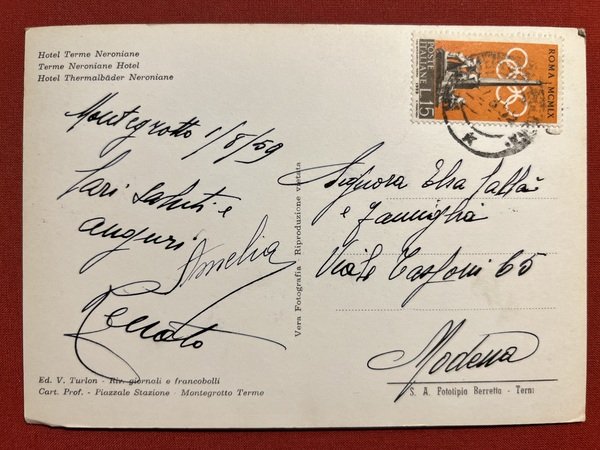 Hotel Terme Neroniane
Terme Neroniane Hotel
Hotel Thermalbäder Neroniane
Montegrotto 1/8/59
Cari saluti e
auguri
Amelia
Renato
Vera Fotografia - Riproduzione vietata
POSTE ITALIANE L.15
ROMA · MCMLX
Signora Elsa
e famiglia
Viale Tassoni 65
Modena
Ed. V. Turlon - Riv. giornali e francobolli
Cart. Prof. - Piazzale Stazione - Montegrotto Terme
S. A. Fototipia Berretta - Terni